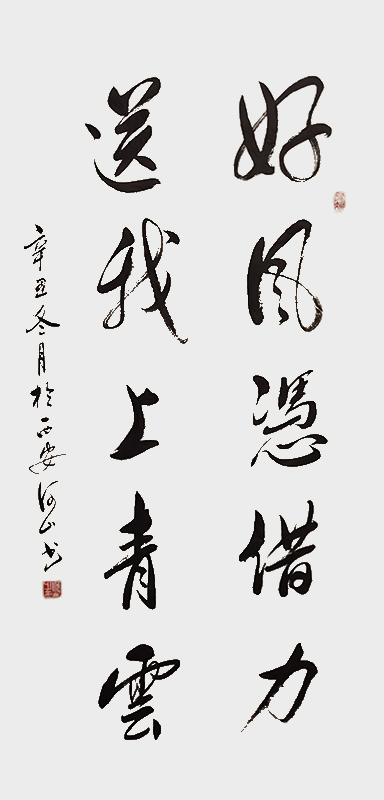 好风憑借力
送我上青雲
辛丑冬月於西安河山书